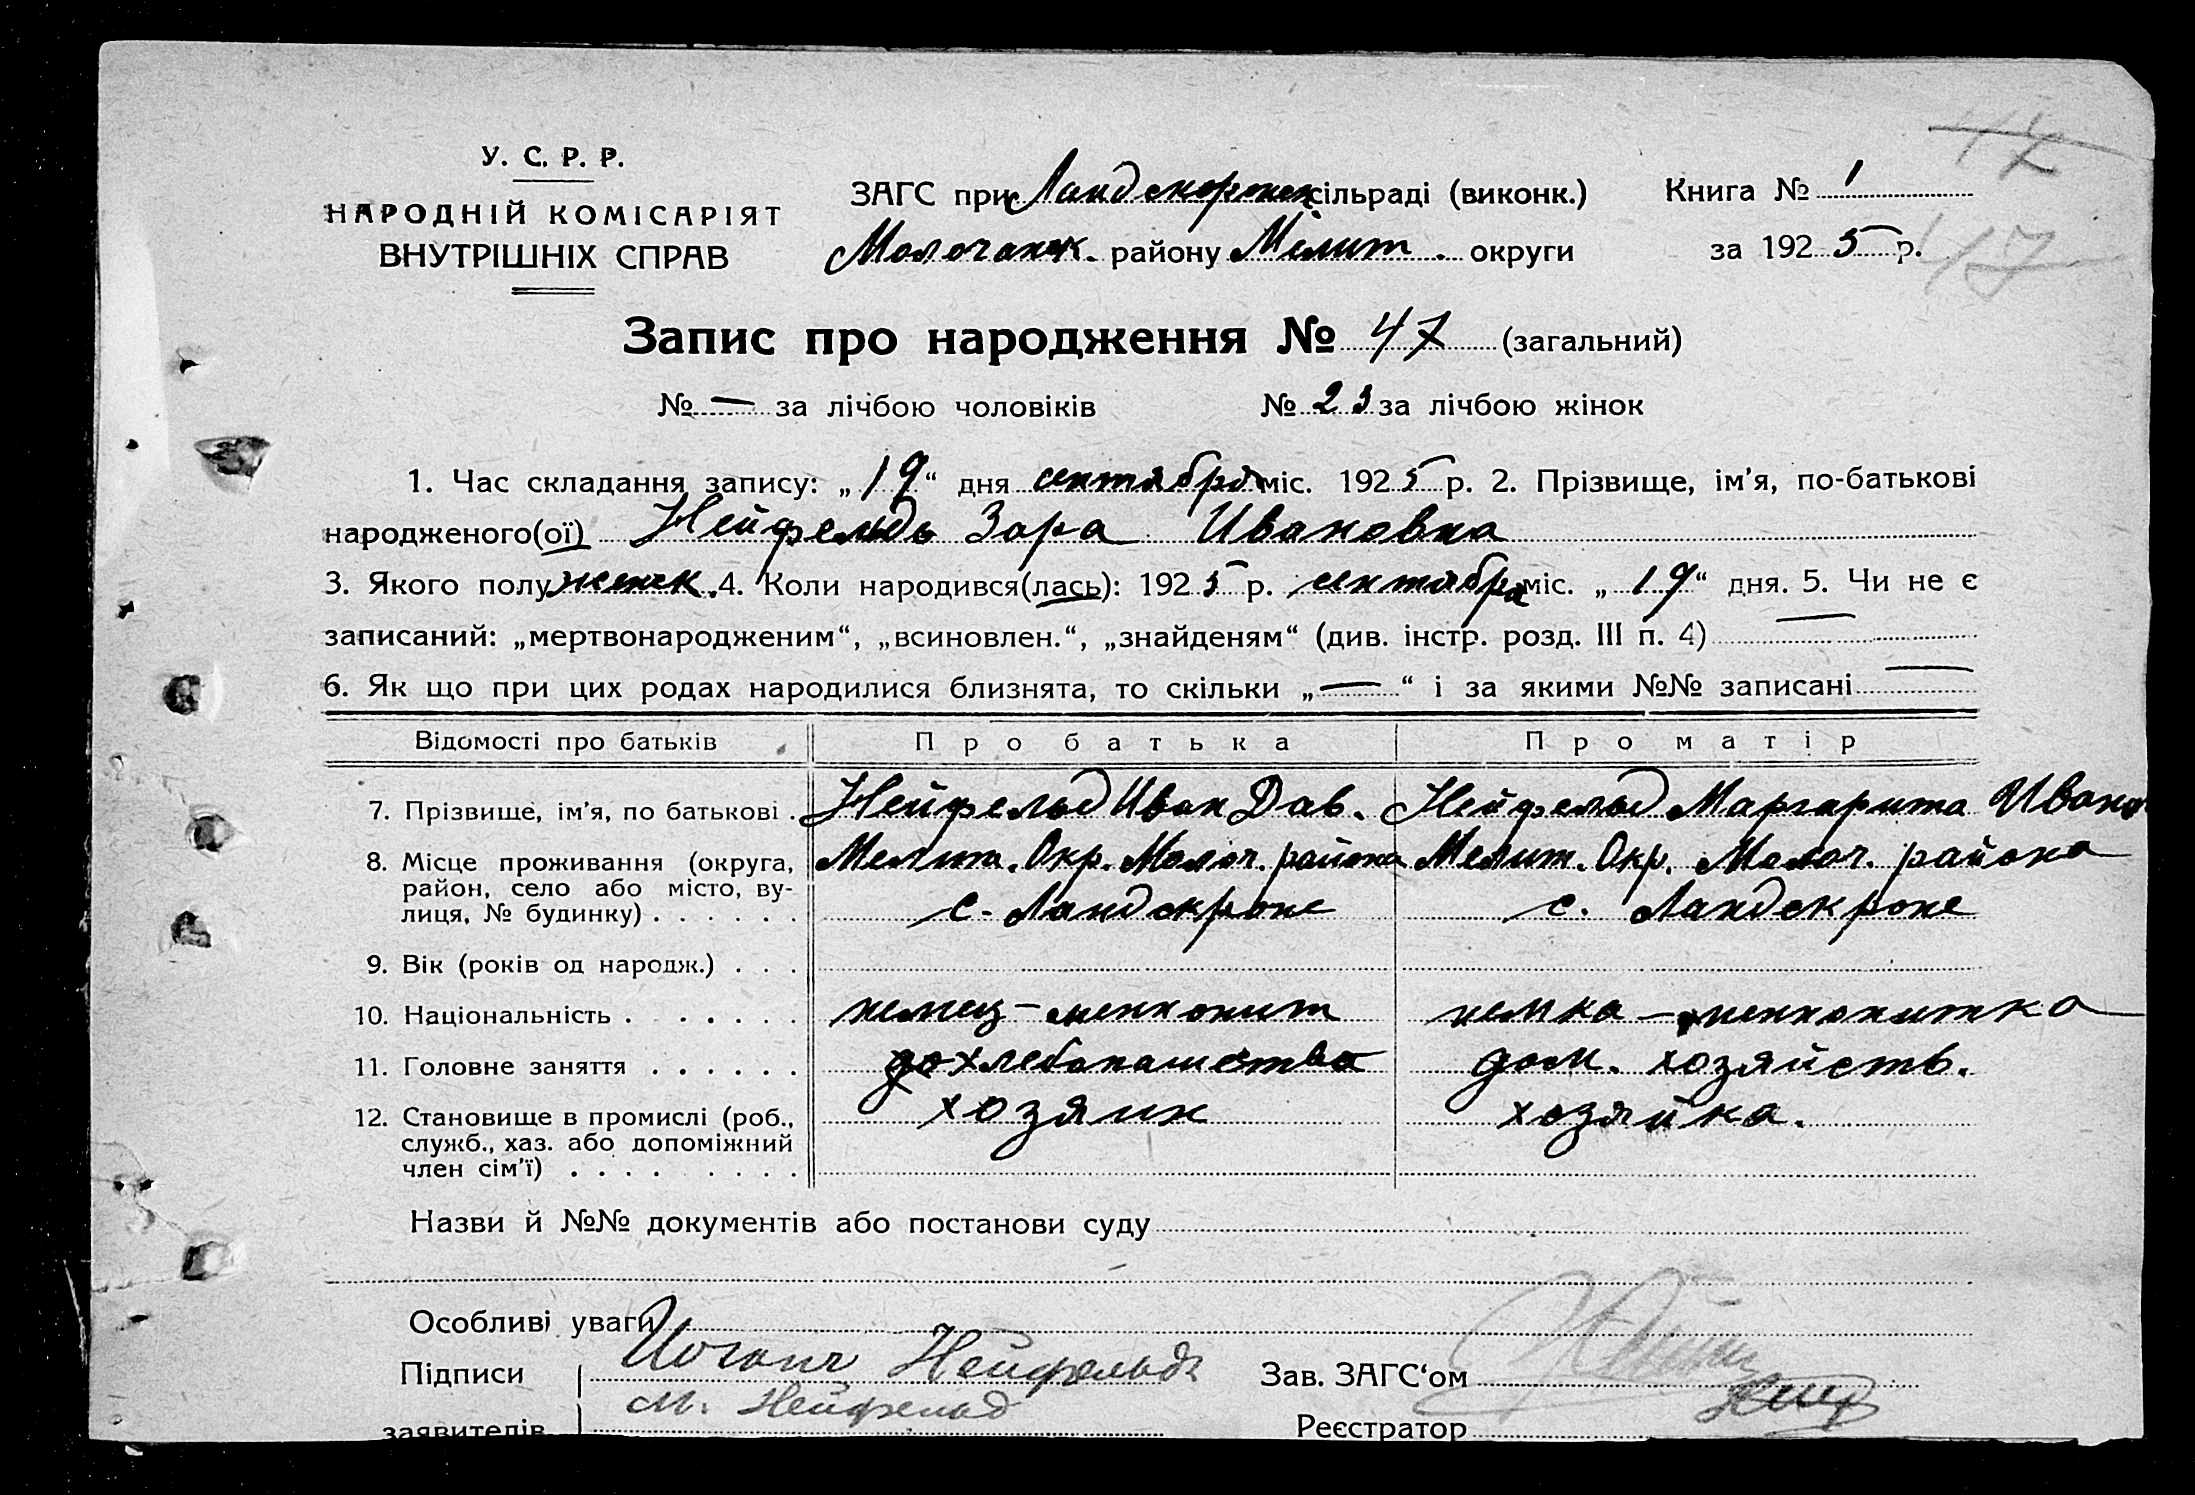 У. С. Р. Р.
НАРОДНІЙ КОМІСАРІЯТ
ВНУТРІШНІХ СПРАВ
ЗАГС при Ландскронск сільраді (виконк.)
Молочанск. району Мелит. округи
Книга № 1
за 1925 р.
47
47
Запис про народження № 47 (загальний)
№ — за лічбою чоловіків № 23 за лічбою жінок
1. Час складання запису: „19“ дня сентября міс. 1925 р. 2. Прізвище, ім'я, по-батькові
народженого(ої) Нейфельдь Зара Ивановна
3. Якого полу женск. 4. Коли народився(лась): 1925 р. сентября міс. „19“ дня. 5. Чи не є
записаний: „мертвонародженим“, „всиновлен.“, „знайденям“ (див. інстр. розд. III п. 4) —
6. Як що при цих родах народилися близнята, то скільки „—“ і за якими №№ записані —
Відомості про батьків Про батька Про матір
7. Прізвище, ім'я, по батькові . Нейфельд Иван Дав. Нейфельд Маргарита Ивано
8. Місце проживання (округа, Мелит. Окр. Молоч. района Мелит. Окр. Молоч. района
район, село або місто, ву-
лиця, № будинку) . . . . . . с. Ландскроне с. Ландскроне
9. Вік (років од народж.) . . .
10. Національність . . . . . . . немец – менонит немка – менонитка
11. Головне заняття . . . . . . хлебопашество дом. хозяйств.
12. Становище в промислі (роб., хозяин хозяйка.
служб., хаз. або допоміжний
член сім'ї) . . . . . . . . .
Назви й №№ документів або постанови суду
Особливі уваги
Підписи Иоганн Нейфельдъ Зав. ЗАГС‘ом
заявителів М. Нейфельд Реєстратор